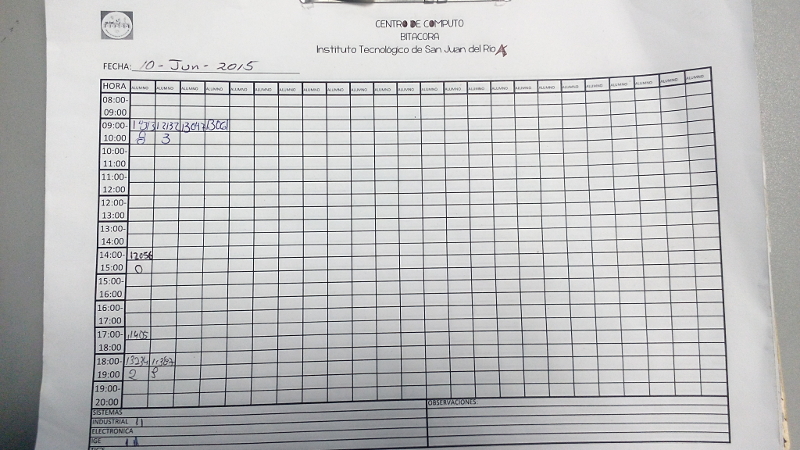 CENTRO DE COMPUTO
BITACORA
Instituto Tecnológico de San Juan del Río
FECHA: 10 - Jun - 2015
HORA ALUMNO ALUMNO ALUMNO ALUMNO ALUMNO ALUMNO ALUMNO ALUMNO ALUMNO ALUMNO ALUMNO ALUMNO ALUMNO ALUMNO ALUMNO ALUMNO ALUMNO ALUMNO ALUMNO ALUMNO ALUMNO ALUMNO ALUMNO ALUMNO
08:00-
09:00
09:00- 12132 13047 1306
10:00 8 3
10:00-
11:00
11:00-
12:00
12:00-
13:00
13:00-
14:00
14:00- 12056
15:00 0
15:00-
16:00
16:00-
17:00
17:00- 1405
18:00
18:00- 13234
19:00 2
19:00-
20:00
SISTEMAS OBSERVACIONES:
INDUSTRIAL
ELECTRONICA
IGE